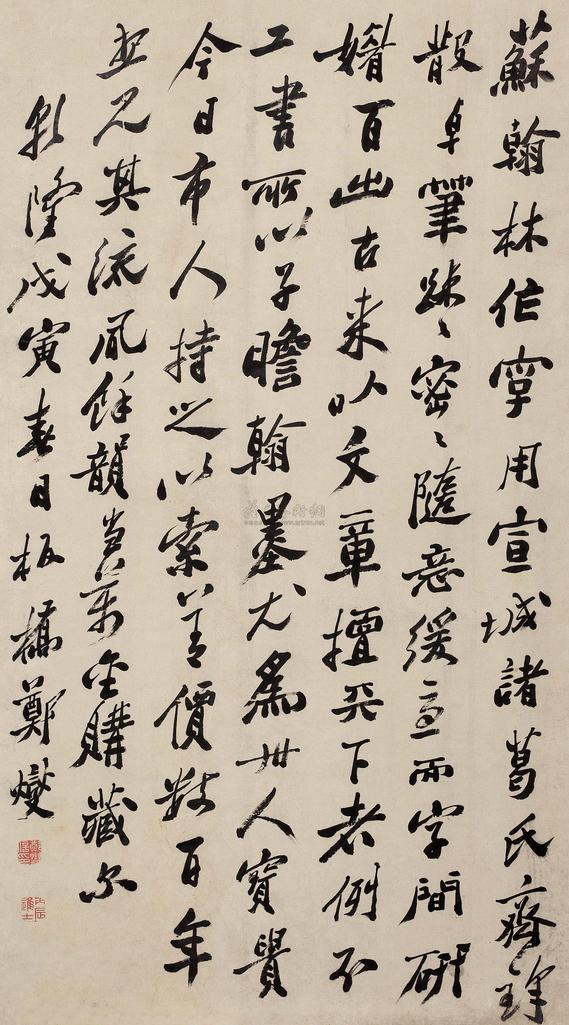 蘇翰林作字用宣城諸葛氏齊鋒
散卓筆疎々密々隨意緩急而字間研
媚百出古来以文章擅天下者例不
工書所以子瞻翰墨尤為世人寶貴
今日市人持之以索善價數百年
見其流風餘韻當萬金購藏尔
乾隆戊寅春日板橋鄭燮
丙辰進士